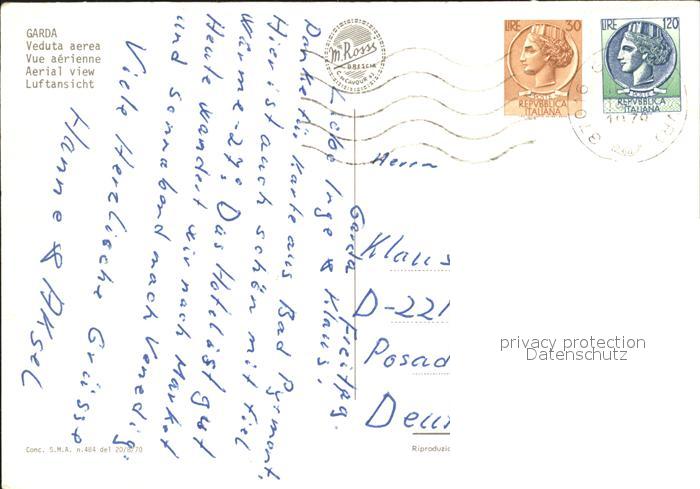 GARDA
Veduta aerea
Vue aérienne
Aerial view
Luftansicht
m. Rossi
BRESCIA
LIRE 30
POSTE
REPVBBLICA
ITALIANA
LIRE 120
POSTE
REPVBBLICA
ITALIANA
Garda Freitag.
Liebe Inge & Klaus,
Danke für Karte aus Bad Pyrmont,
Hier ist auch schön mit fiel
Wärme - 27°. Das Hotel ist gut
Heute wandert wir nach Market
und Sonnabend nach Venedig.
Viele Herzliche Grüsse
Hanne & Aksel
Herrn
Klaus
D-221
Posad
Deu
privacy protection
Datenschutz
Conc. S.M.A. n.484 del 20/8/70
Reproduzio